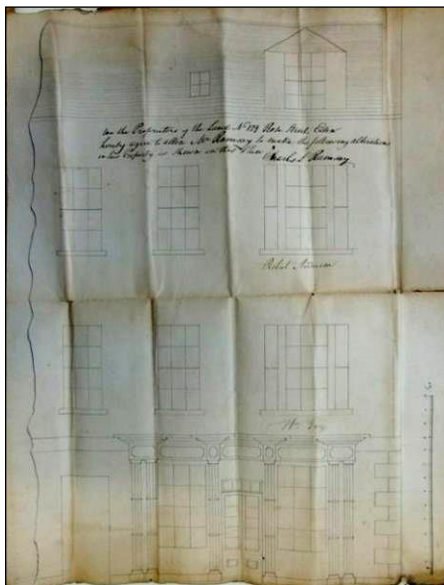 We the Proprietors of the Land No 129 Rose Street, Edinr
hereby agree to allow Mr Ramsay to make the following alterations
in his Property as shown in this Plan
Charles S Ramsay
Robert
Wm